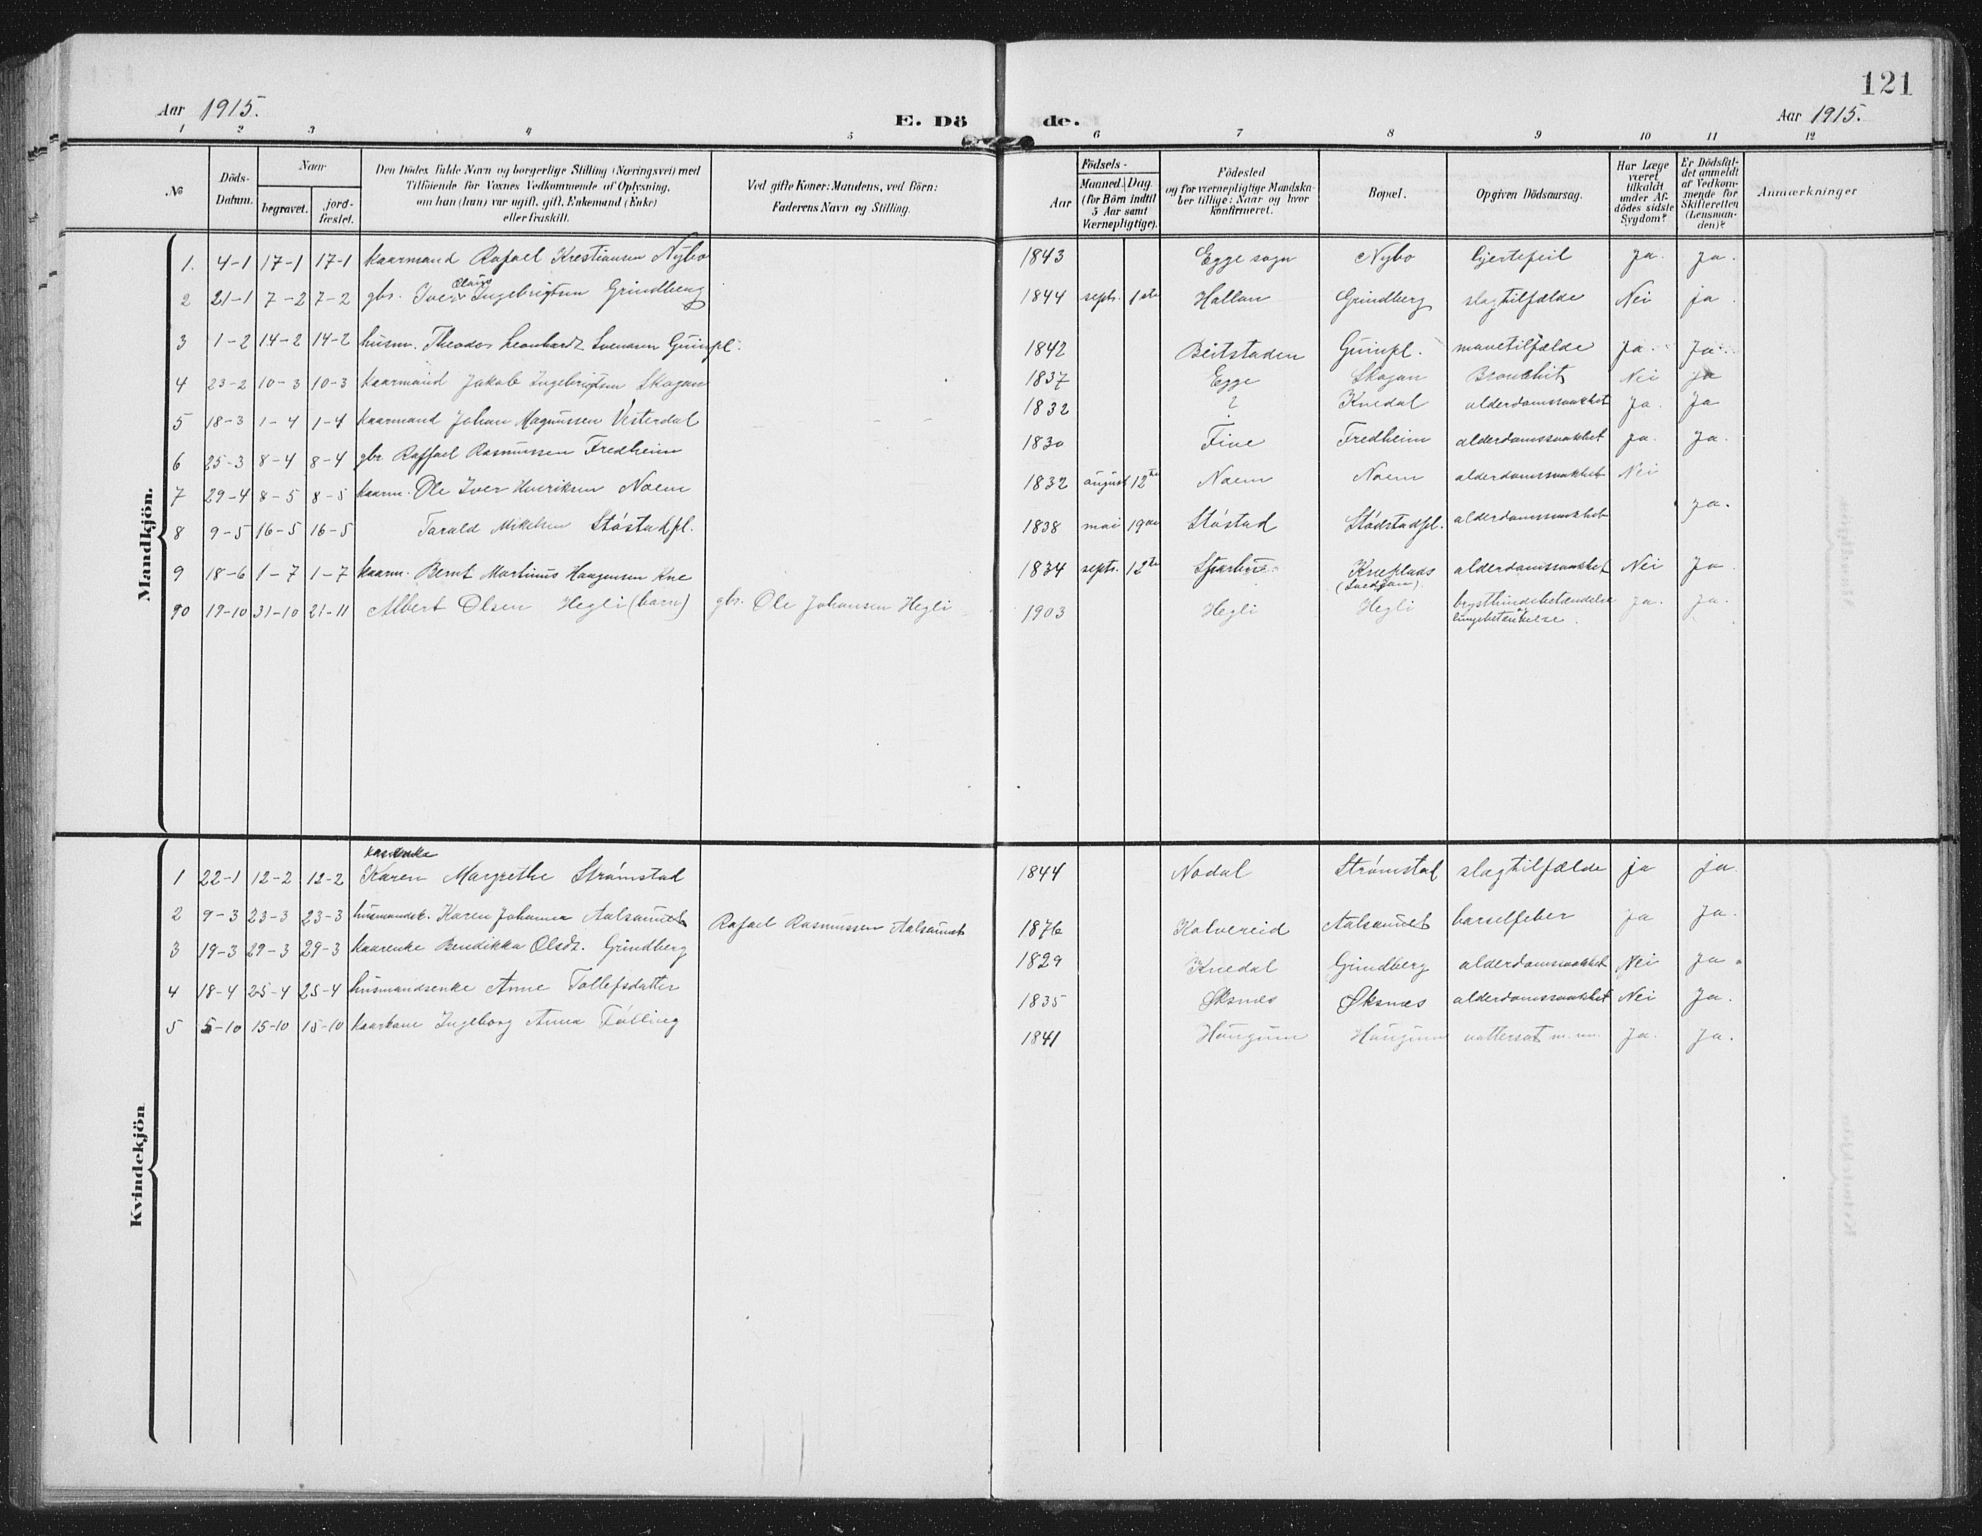 121
Aar 1915.
E. Dö de.
Aar 1915.
1 2 3 4 5 6 7 8 9 10 11 12
No
Döds-
Datum.
Naar
begravet.
jord-
fæstet.
Den Dödes fulde Navn og borgerlige Stilling (Næringsvei) med
Tilföiende for Voxnes Vedkommende af Oplysning,
om han (hun) var ugift, gift, Enkemand (Enke)
eller fraskilt.
Ved gifte Koner: Mandens, ved Börn:
Faderens Navn og Stilling.
Födsels-
Aar
Maaned. Dag
(for Börn indtil
5 Aar samt
Værnepligtige).
Födested
og for værnepligtige Mandska-
ber tillige: Naar og hvor
konfirmeret.
Bopæl.
Opgiven Dödsaarsag.
Har Læge
været
tilkaldt
under Af-
dödes sidste
Sygdom?
Er Dödsfal-
det anmeldt
af Vedkom-
mende for
Skifteretten
(Lensman-
den)?
Anmærkninger
Mandkjön.
1. 4-1 17-1 17-1 kaarmand Rafael Kristiansen Nybo 1843 Egge sogn Nybo hjertefeil Ja. Ja.
2 21-1 7-2 7-2 gbr. Iver Olaus Ingebrigtsen Grindberg 1844 septr. 1ste Hallan Grindberg slagtilfælde Nei ja
3 1-2 14-2 14-2 husm. Theodor Leonhardt Svensen Guinpl. 1842 Beitstaden Guinpl. mavetilfælde Ja. Ja.
4 23-2 10-3 10-3 kaarmand Jakob Ingebrigtsen Skogan 1837 Egge Skogan Bronchit Nei ja
5 18-3 1-4 1-4 kaarmand Johan Magnussen Vesterdal 1832 ? Knedal alderdomssvakhet Ja. Ja
6 25-3 8-4 8-4 gbr Raffael Rasmussen Fredheim 1830 Five Fredheim alderdomssvakhet ja. Ja.
7 29-4 8-5 8-5 kaarm. Ole Iver Henriksen Noem 1832 august 12te Noem Noem alderdomssvakhet Nei
8 9-5 16-5 16-5 Tarald Mikelsen Støstadpl. 1838 mai 19de Støstad Stødstadpl. alderdomssvakhet Ja.
9 18-6 1-7 1-7 kaarm. Bernt Martinus Haagensen Kne 1834 septr. 12te Sparbu Kneplads alderdomssvakhet Nei Ja.
10 19-10 31-10 21-11 Albert Olsen Hegli (barn) gbr. Ole Johansen Hegli 1903 Hegli Hegli brysthindebetændelse og lungebetændelse. Ja. Ja.
Kvindekjön
kaarenke
1 22-1 12-2 12-2 Karen Margrethe Strømstad 1844 Nodal Strømstad slagtilfælde ja ja.
2 9-3 23-3 23-3 husmandsk. Karen Johanna Aalsaunet Rafael Rasmussen Aalsaunet 1876 Kolvereid Aalsaunet barselfeber ja Ja.
3 19-3 29-3 29-3 kaarenke Bendikka Olsdr. Grindberg 1829 Knedal Grindberg alderdomssvakhet Nei Ja.
4 18-4 25-4 25-4 husmandsenke Anne Tollefsdatter 1835 Øksnes Øksnes alderdomssvakhet Nei Ja.
5 5-10 15-10 15-10 kaarkone Ingeborg Anna Følling 1841 Haugum Haugum vattersot m.m. Ja. Ja.